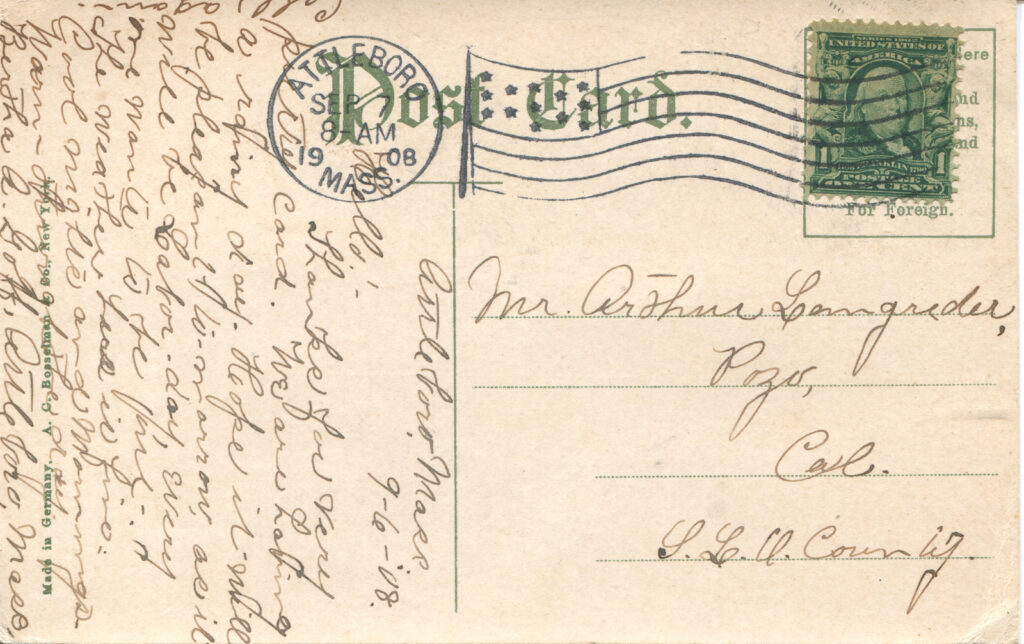 Post Card.
ATTLEBORO
SEP 7
8-AM
1908
MASS.
SERIES 1902
UNITED STATES OF
AMERICA
FRANKLIN
POSTAGE
ONE CENT
1 1
For Foreign.
Mr. Arthur Langreder,
Pozo,
Cal.
S. L. O. County.
Attleboro, Mass
9-6-'08.
Hello!-
Thanks for very
pretty card. We are having
a rainy day. Hope it will
be pleasant to-morrow, as it
will be Labor-day, every
one wants to be
The weather here is fine.
Cool nights and Mornings
Warm
Bertha A. Attleboro, Mass.
Call again.
Made in Germany. A. C. Bosselman & Co., New York.